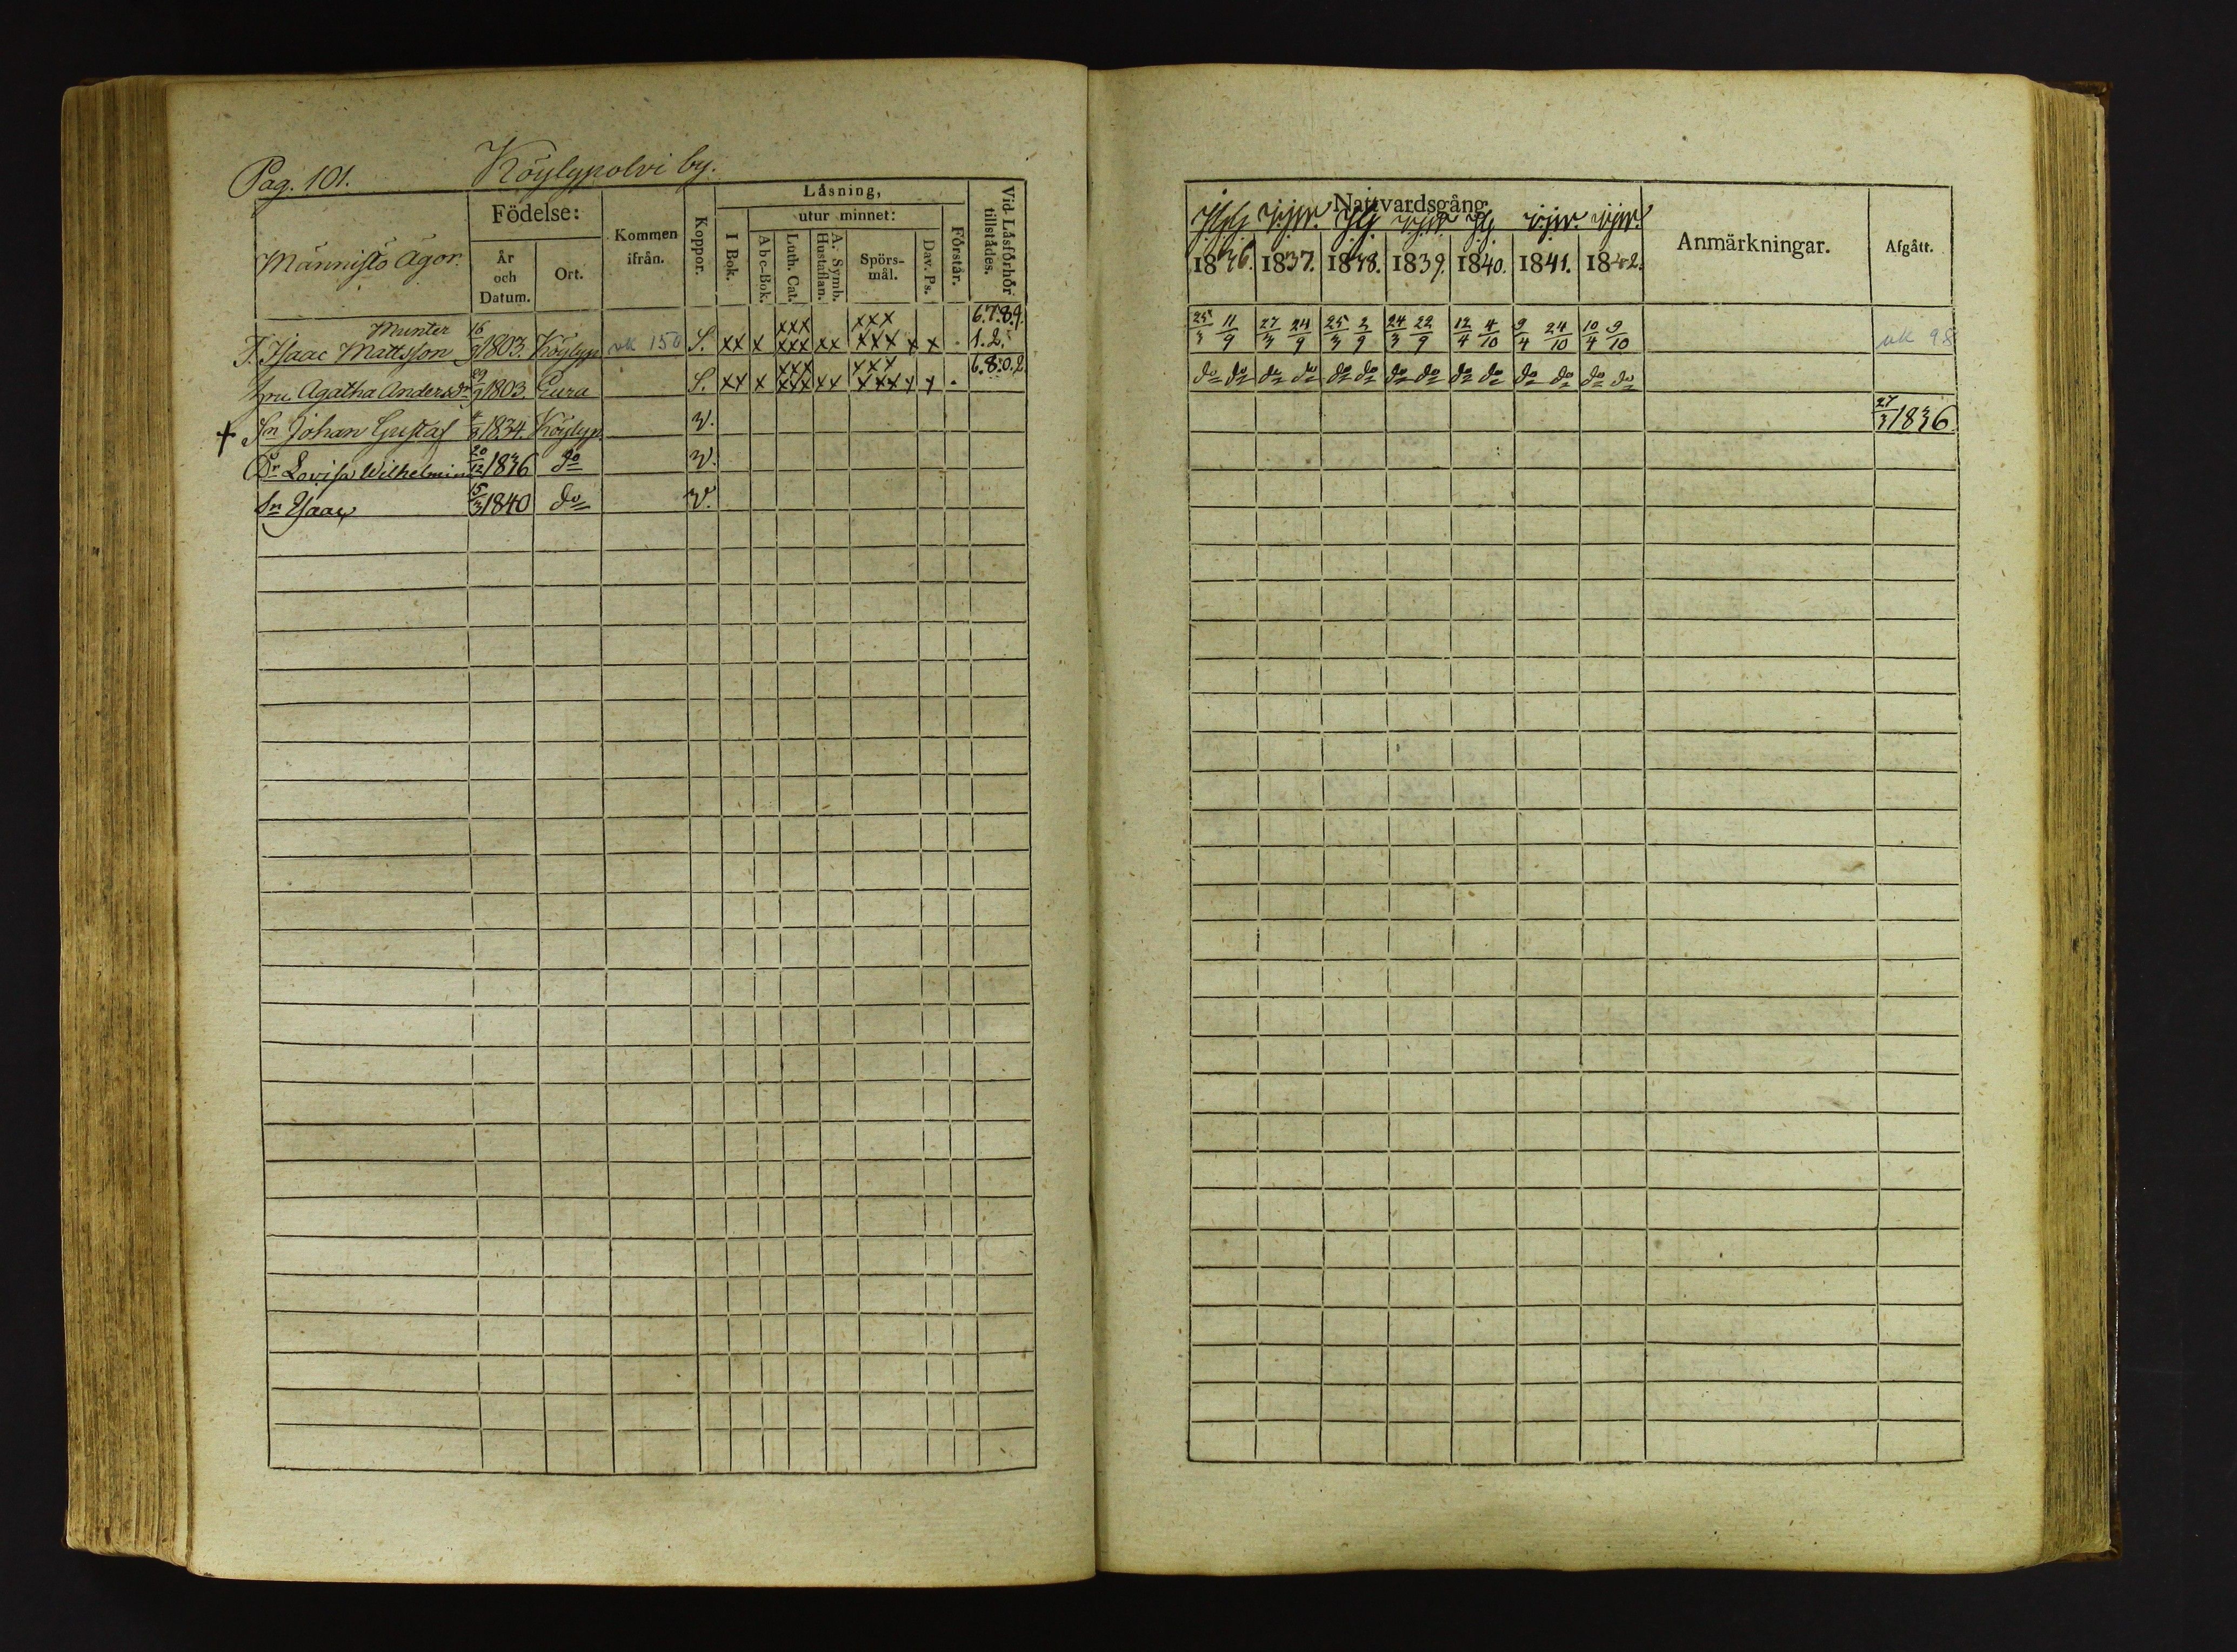 Pag. 101. Köylypolvi by.
Männistö Ägor.
Födelse:
År och Datum.
Ort.
Kommen ifrån.
Koppor.
Låsning,
utur minnet:
I Bok.
Abc-Bok.
Luth. Cat.
A. Symb. Hustaflan.
Spörs-mål.
Dav. Ps.
Förstår.
Vid Låsförhör tillstådes.
Munter
T. Isaac Mattsson 16/9 1803. Köylyp. uk 150 S. xx x xxx xxx xx xxx xxx x x . 6.7.8.9. 1.2.
Hru Agatha Andersdr 29/9 1803. Eura S. xx x xxx xxx xx xxx xxx x x . 6.8.0.2
+ Sn Johan Gustaf 1834. Köylyp. v.
Dr Lovisa Wilhelmina 20/12 1836 do v.
Sn Isaac 15/3 1840 do v.
Nattvardsgång
1836. 1837. 1838. 1839. 1840. 1841. 1842.
Anmärkningar.
Afgått.
25/3 11/9 27/3 24/9 25/3 2/9 24/3 22/9 12/4 4/10 9/4 24/10 10/4 9/10 uk 98
do do do do do do do do do do do do do do
27/3 1836